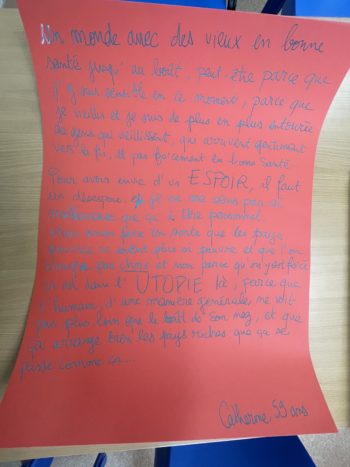 Un monde avec des vieux en bonne
santé jusqu'au bout, peut-être parce que
j'y suis sensible en ce moment, parce que
je vieillis et je suis de plus en plus entourée
de gens qui vieillissent, qui arrivent
vers la fin, et pas forcément en bonne santé.
Pour avoir envie d'un ESPOIR, il faut
un désespoir. je ne me sens pas si
que ça à titre personnel
faire en sorte que les pays
pauvres ne soient plus si pauvres et que l'on
par choix et non parce qu'on y est forcé
on est dans l'UTOPIE là, parce que
l'humain, d'une manière générale, ne voit
pas plus loin que le bout de son nez, et que
ça arrange bien les pays riches que ça se
passe comme ça...
Catherine, 59 ans